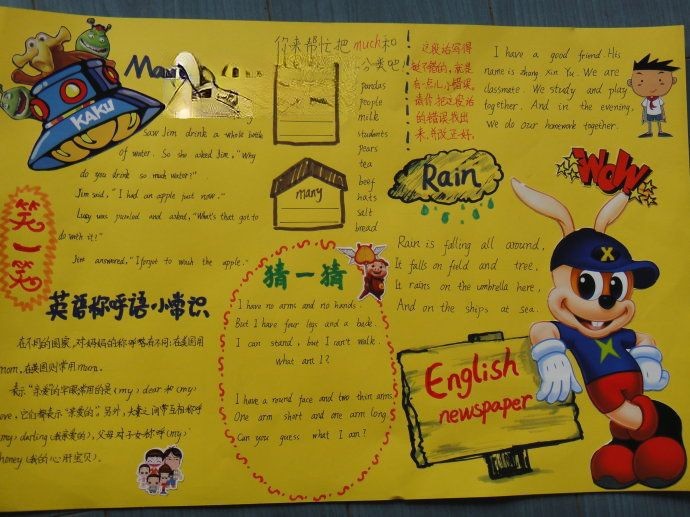 KAKU
Many
saw Jim drink a whole bottle
of water. So she asked Jim, "Why
do you drink so much water?"
Jim said, "I had an apple just now."
Lucy was puzzled and asked, "What's that got to
do with it?"
Jim answered, "I forgot to wash the apple."
笑一笑
英语称呼语小常识
在不同的国家，对妈妈的称呼略有不同：在英国用
mom，在美国则常用mom.
表示"亲爱的"字眼常用的是(my) dear 和(my)
ove，它们都表示"亲爱的"。另外，夫妻之间常互相称呼
(my) darling (我亲爱的)，父母对子女称呼(my)
honey (我的心肝宝贝)。
你来帮忙把much和
分类吧！
many
pandas
people
milk
students
pears
tea
beef
hats
salt
bread
猜一猜
I have no arms and no hands.
But I have four legs and a back.
I can stand, but I can't walk.
What am I?
I have a round face and two thin arms.
One arm short and one arm long.
Can you guess what I am?
这段话写得
挺不错的，就是
有一点儿小错误，
请你把这段话
的错误找出
来，并改正好。
I have a good friend. His
name is zhang Xin Yu. We are
classmate. We study and play
together. And in the evening,
We do our homework together.
WOW
Rain
Rain is falling all around,
It falls on field and tree,
It rains on the umbrella here,
And on the ships at sea.
X
English
newspaper